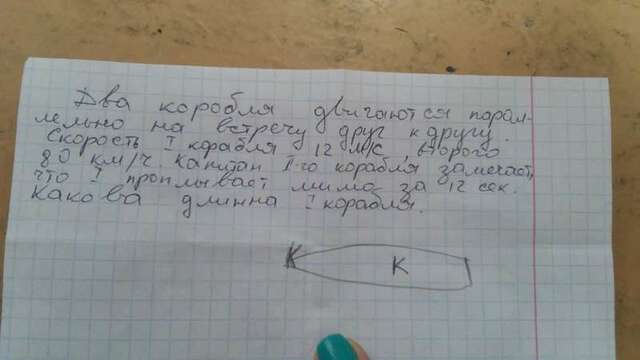 Два корабля двигаются парал-
лельно на встречу друг к другу.
Скорость I корабля 12 м/с, второго
80 км/ч. Капитан I-го корабля замечает,
что I проплывает мимо за 12 сек.
Какова длинна I корабля.
К К